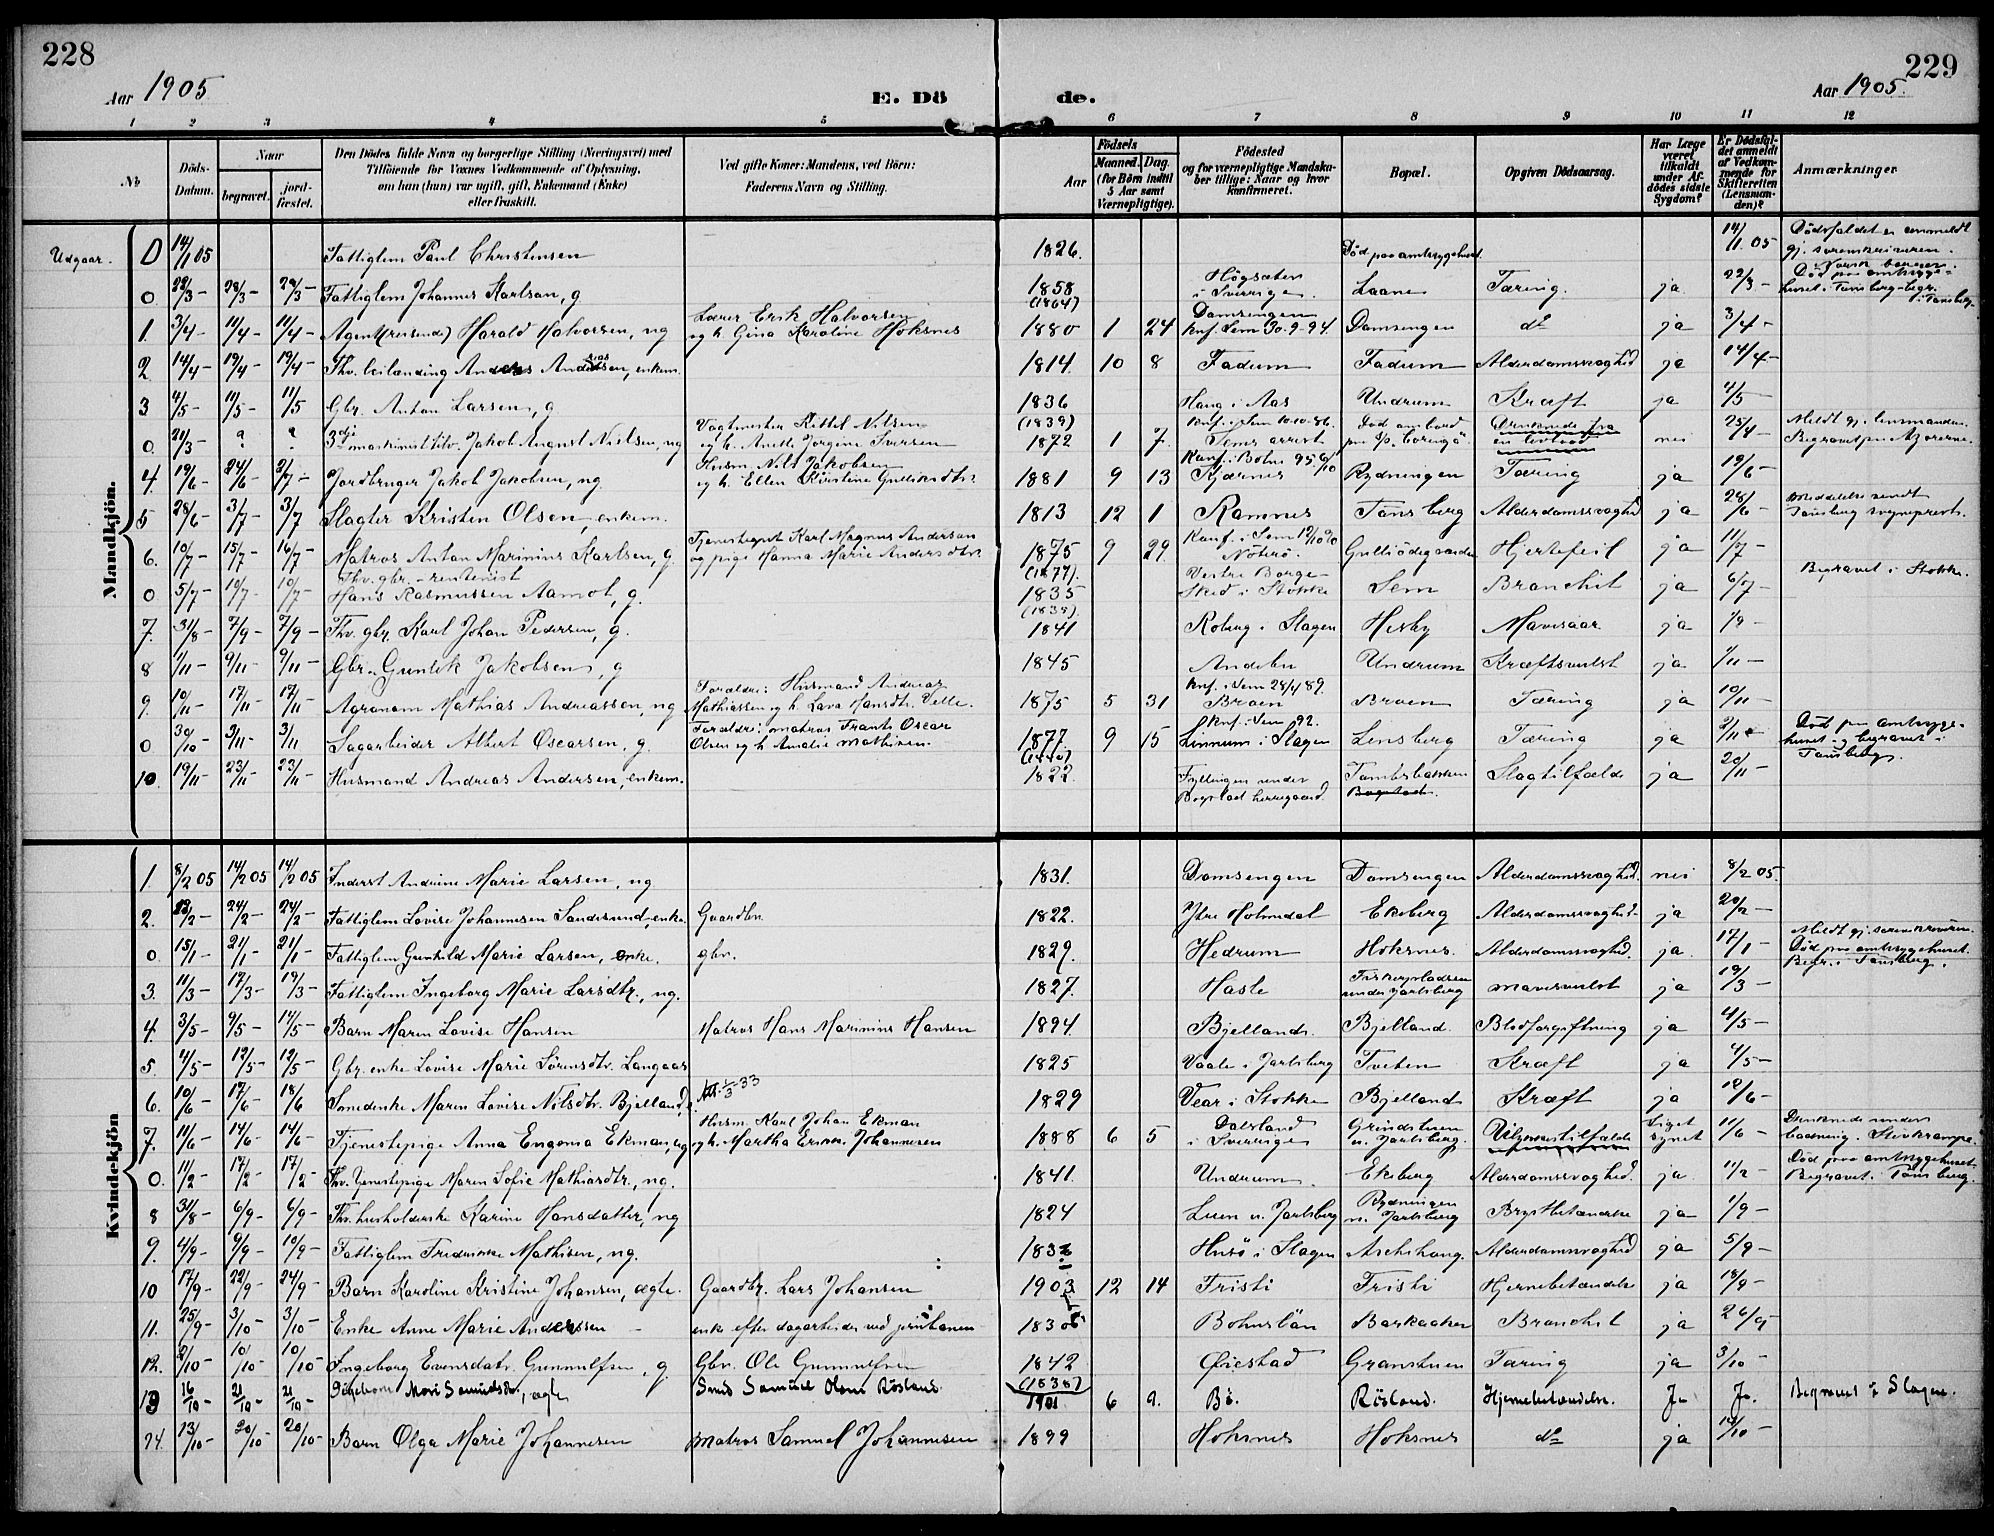 228
229
Aar 1905
E. Dö de.
Aar 1905.
1 2 3 4 5 6 7 8 9 10 11 12
No
Döds-Datum.
Naar
begravet.
jord-fæstet.
Den Dödes fulde Navn og borgerlige Stilling (Næringsvei) med Tilföiende for Voxnes Vedkommende af Oplysning, om han (hun) var ugift, gift, Enkemand (Enke) eller fraskilt.
Ved gifte Koner: Mandens, ved Börn: Faderens Navn og Stilling.
Födsels
Aar
Maaned. Dag.
(for Börn indtil 5 Aar samt Værnepligtige).
Födested og for værnepligtige Mandskaber tillige: Naar og hvor konfirmeret.
Bopæl.
Opgiven Dödsaarsag.
Har Læge været tilkaldt under Afdödes sidste Sygdom?
Er Dödsfaldet anmeldt af Vedkommende for Skifteretten (Lensmanden)?
Anmærkninger
Mandkjön.
Udgaar. 0 14/1 05 Fattiglem Paul Christensen 1826. Död paa amtssygehuset. 14/1 05 Dödsfaldet er anmeldt gj. sorenskriveren.
0 22/3 – 28/3 – 28/3 – Fattiglem Johannes Karlsen, g 1858 (1864) Högsäter i Sverrige. Laane Tæring. ja 22/3 – Död paa amtssygehuset i Tønsberg
1. 3/4 – 11/4 – 11/4 – Agent (reisende) Harald Halvorsen, ug Lærer Erik Halvorsen og h. Gina Karoline Hoksnes 1880 1 24 Damsengen Knf. Sem 30-9-94. Damsengen do ja 3/4 –
2 14/4 – 19/4 – 19/4 – Fhv. leilænding Anders Andersen, enkem. 1814. 10 8 Fadum Fadum Alderdomssvaghed ja 14/4 –
3 4/5 – 11/5 – 11/5 Gbr. Anton Larsen, g 1836 (1839) Haug i Aas Undrum Kræft ja 4/5 –
0 21/3 – ? ? 3die maskinist Jakob August Nielsen, ug Vagtmester Kittil Nilsen og h. Anette Jørgine Iversen 1872 1 7. Knf. i Sem 10-10-86. Sems arrest nei 25/4 – Meldt gj. lensmanden. Begravet paa Azorerne.
4. 19/6 – 24/6 – 2/7 – Jordbruger Jakob Jakobsen, ug. Husm. Nils Jakobsen og h. Ellen Kirstine Gulliksdtr. 1881 9 13 Kjærnes Rydningen Tæring ja 19/6 –
5 28/6 – 3/7 – 3/7 Slagter Kristen Olsen, enkem. 1813 12 1 Ramnes Tønsberg Alderdomssvaghed ja 28/6 – Meddelelse sendt Tønsberg sogneprest.
6. 10/7 – 15/7 – 16/7 – Matros Anton Marinius Karlsen, g. Tjenestegut Karl Magnus Andersen og pige Hanna Marie Andersdtr. 1875 9 29. (1877). Nøterö. Gulliödegaarden Hjertefeil ja 11/7 –
0 5/7 – 10/7 – 10/7 – Fhv. gbr. – rentenist Hans Rasmussen Aamot, g. 1835 (1835). Vestre Borge – Sked i Stokke Sem Bronchit ja 6/7 – Begravet i Stokke.
7. 31/8 – 7/9 – 7/9 – Fhv. gbr. Karl Johan Pedersen, g. 1841 Roberg i Slagen Hesby Mavesaar ja 1/9 –
8 1/11 – 9/11 – 9/11 – Gbr. Gunlek Jakobsen, g 1845 Andebu Undrum Kræftsvulst ja 1/11 –
9. 10/11 – 17/11 – 17/11 – Agronom Mathias Andreassen, ug Forældre: Husmand Andreas Mathiassen og h. Lava Hansdtr. Velle. 1875 5 31 Knf. i Sem 28/4 89. Broen Broen Tæring ja 10/11 –
0 30/10 – 3/11 – 3/11 Sagarbeider Albert Oscarsen, g. Forældre: matros Frants Oscar Olsen og h. Amalie Mathisen. 1877. 9 15 Knf. Sem 92. Linnum i Slagen Lensberg Tæring ja 2/11 – Död paa amtssygehuset og begravet i Tønsberg.
10. 19/11 – 23/11 – 23/11 – Husmand Andreas Andersen, enkem. 1822. Fyllingen under Bogstad herregaard. Tambsbakken Bogstad. Slagtilfælde ja 20/11 –
Kvindekjön
1. 8/2 05 14/2 05 14/2 05 Inderst Andrine Marie Larsen, ug 1831. Damsengen Damsengen Alderdomssvaghed. nei 8/2 05.
2. 24/2 – 24/2 – Fattiglem Lovise Johannesen Sandesund, enke. Gaardbr. 1822. Ytre Holmdal Ekeberg Alderdomssvaghed – ja 20/2 –
0. 15/1 – 21/1 – 21/1 – Fattiglem Gunhild Marie Larsen, enke. gbr. 1829. Hedrum Hoksnes. Alderdomssvaghed. ja. 17/1 – Meldt gj. sorenskriveren. Död paa amtssygehuset. Begr. i Tønsberg.
3. 11/3 – 17/3 – 19/3 – Fattiglem Ingeborg Marie Larsdtr., ug. 1827. Hasle Fiskerpladsen under Jarlsberg mavesvulst ja 12/3 –
4. 3/5 – 9/5 – 14/5 – Barn Maren Lovise Hansen Matros Hans Marinius Hansen 1894. Bjelland. Bjelland. Blodforgiftning ja 4/5 –
5. 4/5 – 12/5 – 12/5 – Gbr. enke Lovise Marie Sørensdtr. Langaas 1825 Vaale i Jarlsberg Tveten Kræft ja 4/5 –
6. 10/6 – 17/6 – 18/6 Smedenke Maren Lovise Nilsdtr. Bjelland, 1/3-33 1829 Vear i Stokke Bjelland Kræft ja 10/6 –
7. 11/6 – 14/6 – 14/6 – Tjenestepige Anna Eugenia Ekman, ug Husm. Karl Johan Ekman og h. Martha Johannesen 1888 6 5 Dalsland i Sverrige Grindstuen u. Jarlsberg. Ulykkestilfælde Liget synet 11/6 – Druknede under badning. Stivkrampe.
0. 11/2 – 17/2 – 17/2 – Fhv. tjenestepige Maren Sofie Mathiasdtr., ug. 1841. Undrum. Ekeberg Alderdomssvaghed. ja 11/2 – Död paa amtssygehuset. Begravet i Tønsberg.
8 31/8 – 6/9 – 6/9 – Fhv. husholderske Karine Hansdatter, ug 1824 Luen u. Jarlsberg Rydningen u. Jarlsberg Brystbetændelse ja – 1/9 –
9. 4/9 – 9/9 – 10/9 – Fattiglem Frederikke Mathisen, ug. Husö i Slagen Askehaug. Alderdomssvaghed ja 5/9 –
10 17/9 – 22/9 – 24/9 Barn Karoline Kristine Johansen, ægte. Gaardbr. Lars Johansen 1903 12 14 Fristi Fristi Hjernebetændelse ja 18/9 –
11. 25/9 – 3/10 – 3/10 – Enke Anne Marie Anderssen enke efter dagarbeider ved jernbanen Bohuslän Barkaaker Bronchit ja 26/9 –
12. 2/10 – 10/10 – 10/10 – Ingeborg Evensdatr. Gunnulfsen, g. Gbr. Ole Gunnulfsen 1842 (1838) Øiestad Granstuen Tæring ja 3/10 –
13 16/10 – 21/10 – 21/10 – Pigebarn Mari Samuelsdtr, ægte Smed Samuel Olsen Røsland. 1901 6 9. Bö. Røsland. Hjernebetændelse. Ja Ja. Begravet i Slagen.
14. 13/10 – 20/10 – 20/10 – Barn Olga Marie Johannesen Matros Samuel Johannesen 1899 Hoksnes Hoksnes do ja 14/10 –